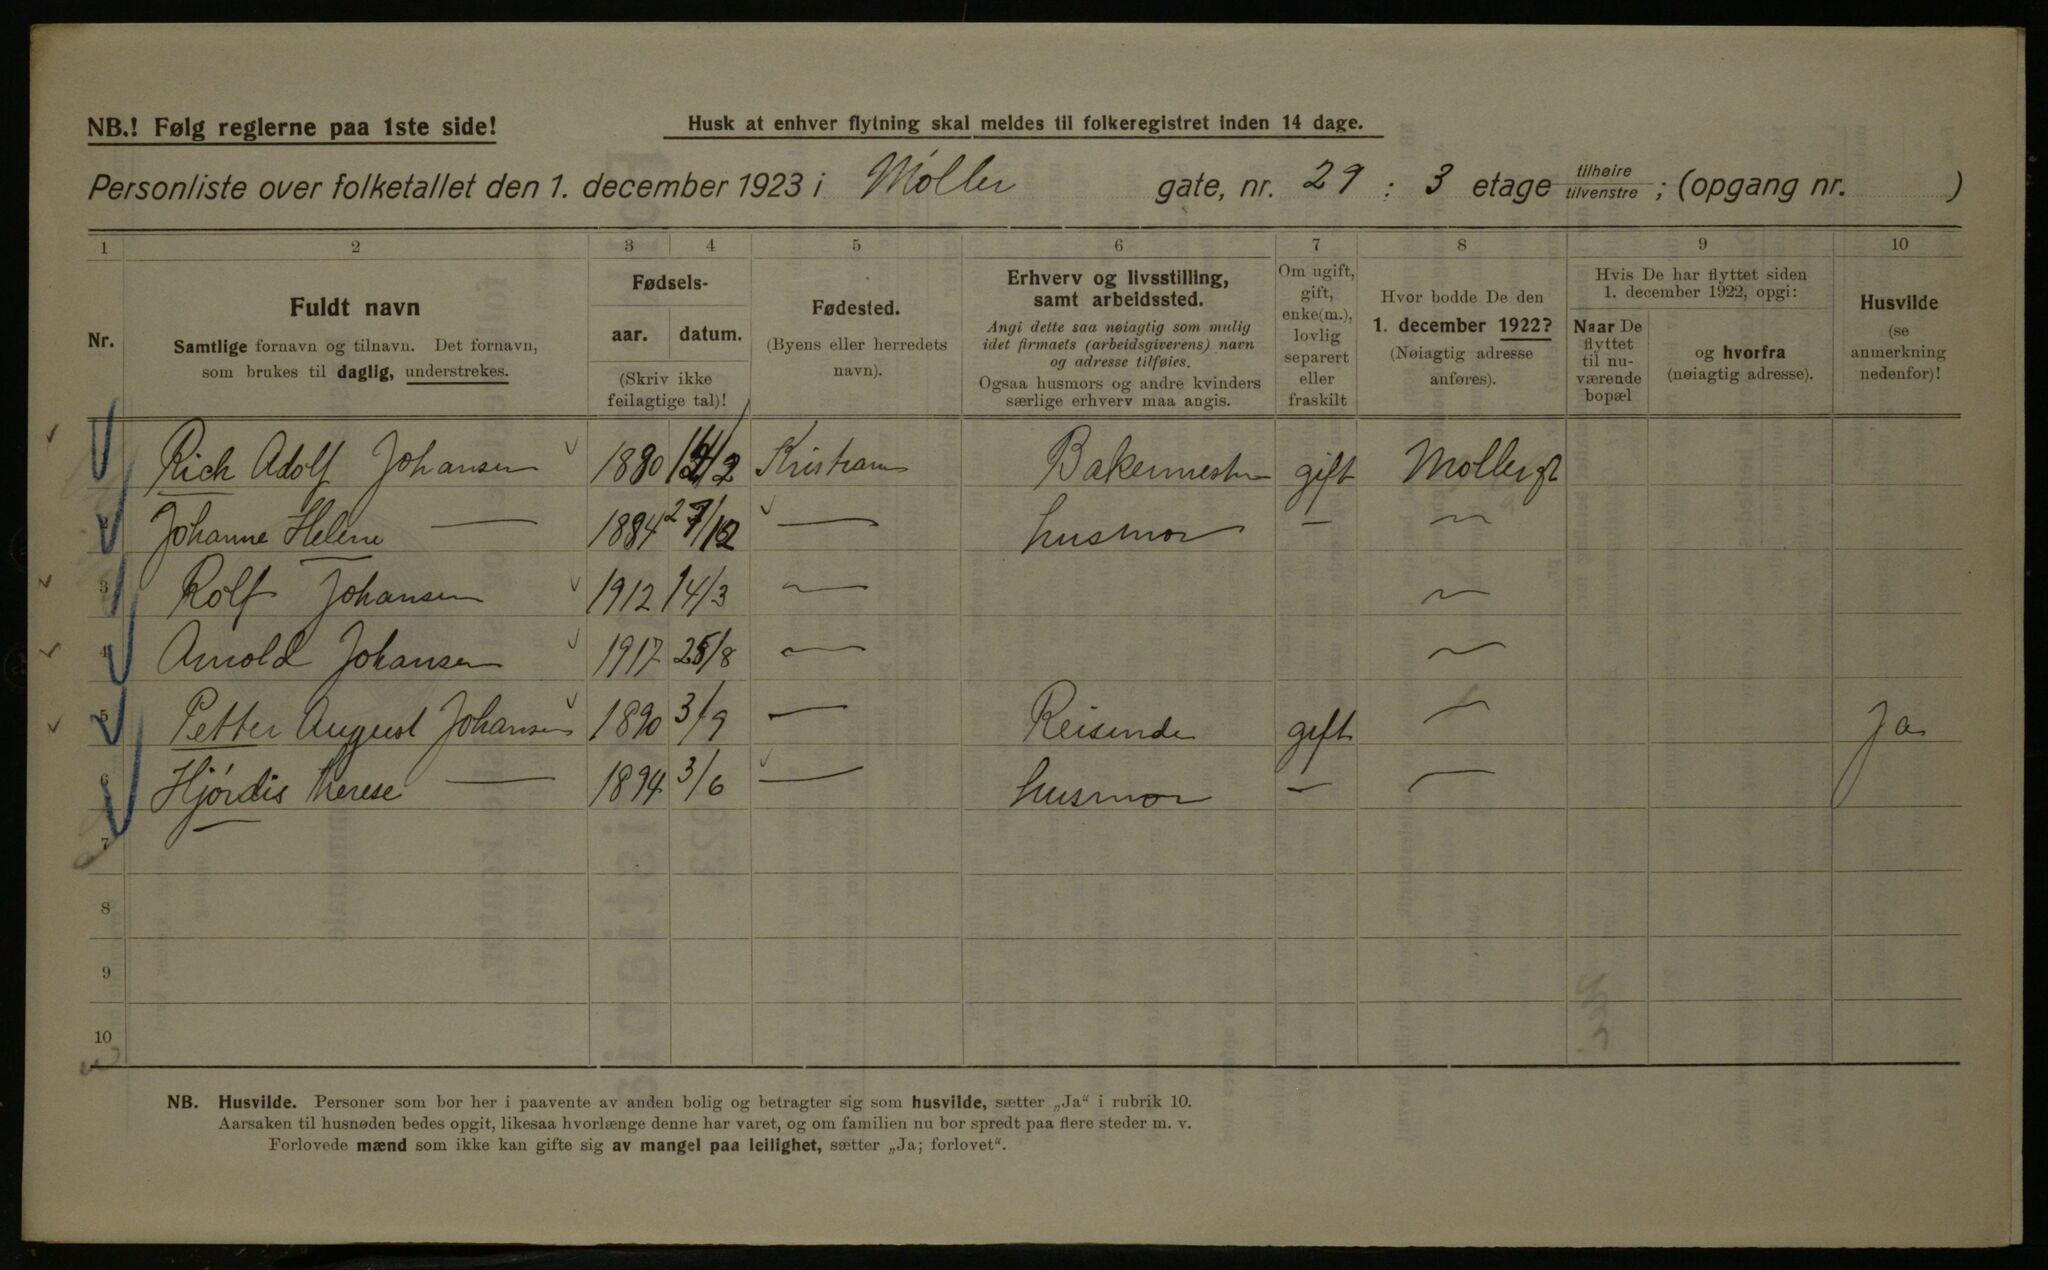 NB.! Følg reglerne paa 1ste side!
Husk at enhver flytning skal meldes til folkeregistret inden 14 dage.
Personliste over folketallet den 1. december 1923 i Møller gate, nr. 29 : 3 etage tilhøire tilvenstre ; (opgang nr. )
1 2 3 4 5 6 7 8 9 10
Nr.
Fuldt navn
Samtlige fornavn og tilnavn. Det fornavn,
som brukes til daglig, understrekes.
Fødsels-
aar. datum.
(Skriv ikke
feilagtige tal)!
Fødested.
(Byens eller herredets
navn).
Erhverv og livsstilling,
samt arbeidssted.
Angi dette saa nøiagtig som mulig
idet firmaets (arbeidsgiverens) navn
og adresse tilføies.
Ogsaa husmors og andre kvinders
særlige erhverv maa angis.
Om ugift,
gift,
enke(m.),
lovlig
separert
eller
fraskilt
Hvor bodde De den
1. december 1922?
(Nøiagtig adresse
anføres).
Hvis De har flyttet siden
1. december 1922, opgi:
Naar De
flyttet
til nu-
værende
bopæl
og hvorfra
(nøiagtig adresse).
Husvilde
(se
anmerkning
nedenfor)!
Rich Adolf Johansen 1880 Kristiania Bakermester gift Møllergt
2 Johanne Helene — 1884 27/12 — husmor — —
3 Rolf Johansen 1912 14/3 — —
4 Arnold Johansen 1917 25/8 — —
5 Petter August Johansen 1890 3/9 — Reisende gift — Ja
6 Hjørdis Therese — 1894 3/6 — husmor — —
7
8
9
10
NB. Husvilde. Personer som bor her i paavente av anden bolig og betragter sig som husvilde, sætter „Ja“ i rubrik 10.
Aarsaken til husnøden bedes opgit, likesaa hvorlænge denne har varet, og om familien nu bor spredt paa flere steder m. v.
Forlovede mænd som ikke kan gifte sig av mangel paa leilighet, sætter „Ja; forlovet“.